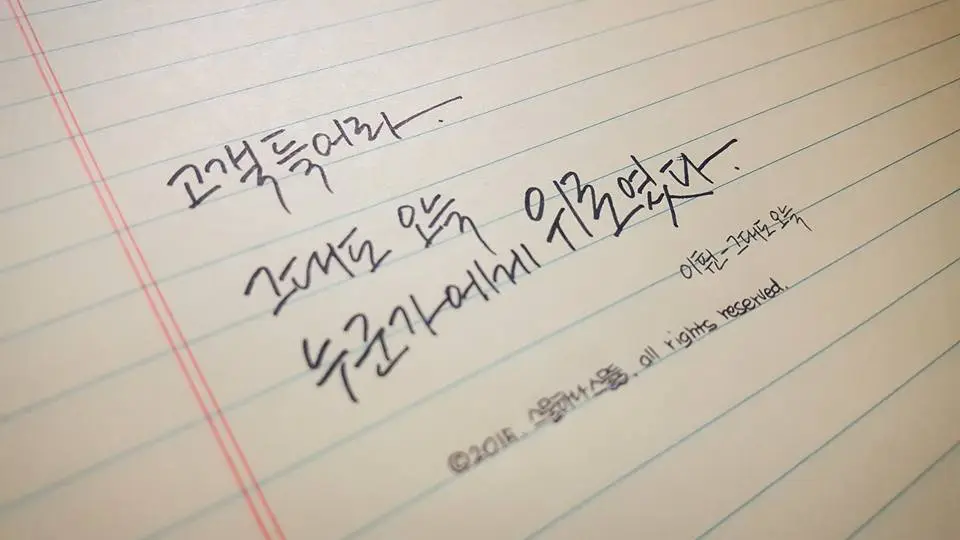 고갤 들어라.
그대도 오늘
누군가에게 위로였다.
이훤 - 그대도 오늘
©2015. all rights reserved.